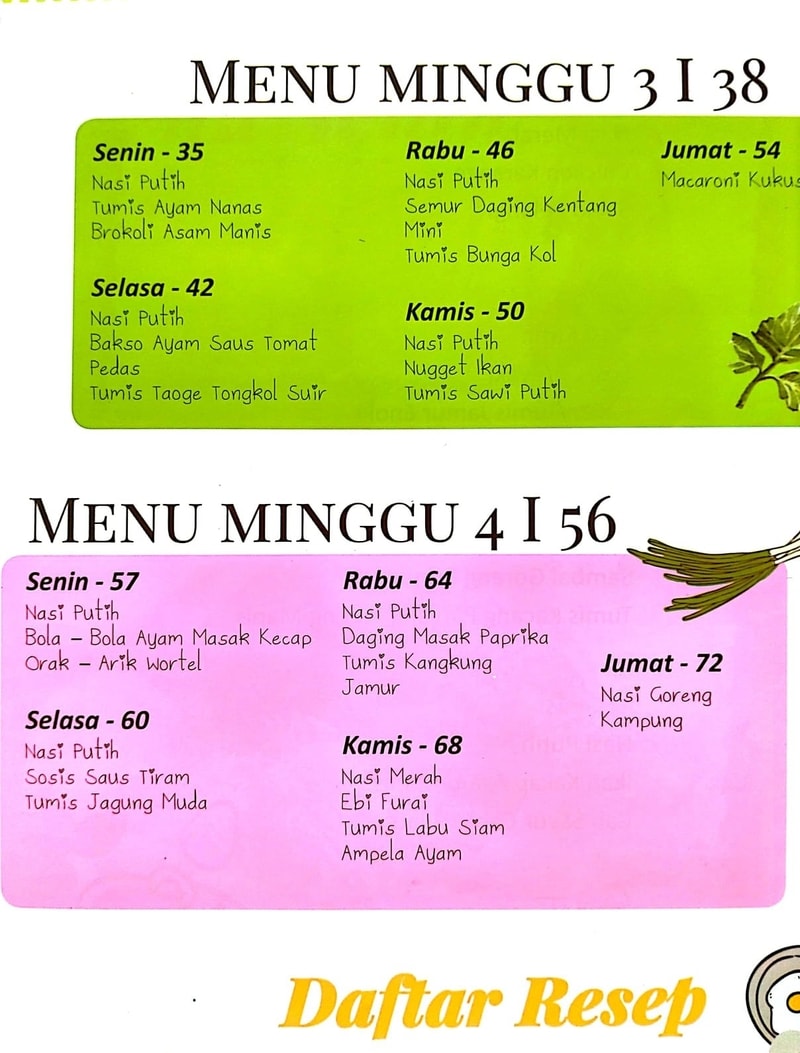 MENU MINGGU 3 I 38
Senin - 35
Nasi Putih
Tumis Ayam Nanas
Brokoli Asam Manis
Selasa - 42
Nasi Putih
Bakso Ayam Saus Tomat
Pedas
Tumis Taoge Tongkol Suir
Rabu - 46
Nasi Putih
Semur Daging Kentang
Mini
Tumis Bunga Kol
Kamis - 50
Nasi Putih
Nugget Ikan
Tumis Sawi Putih
Jumat - 54
Macaroni Kukus
MENU MINGGU 4 I 56
Senin - 57
Nasi Putih
Bola – Bola Ayam Masak Kecap
Orak – Arik Wortel
Selasa - 60
Nasi Putih
Sosis Saus Tiram
Tumis Jagung Muda
Rabu - 64
Nasi Putih
Daging Masak Paprika
Tumis Kangkung
Jamur
Kamis - 68
Nasi Merah
Ebi Furai
Tumis Labu Siam
Ampela Ayam
Jumat - 72
Nasi Goreng
Kampung
Daftar Resep